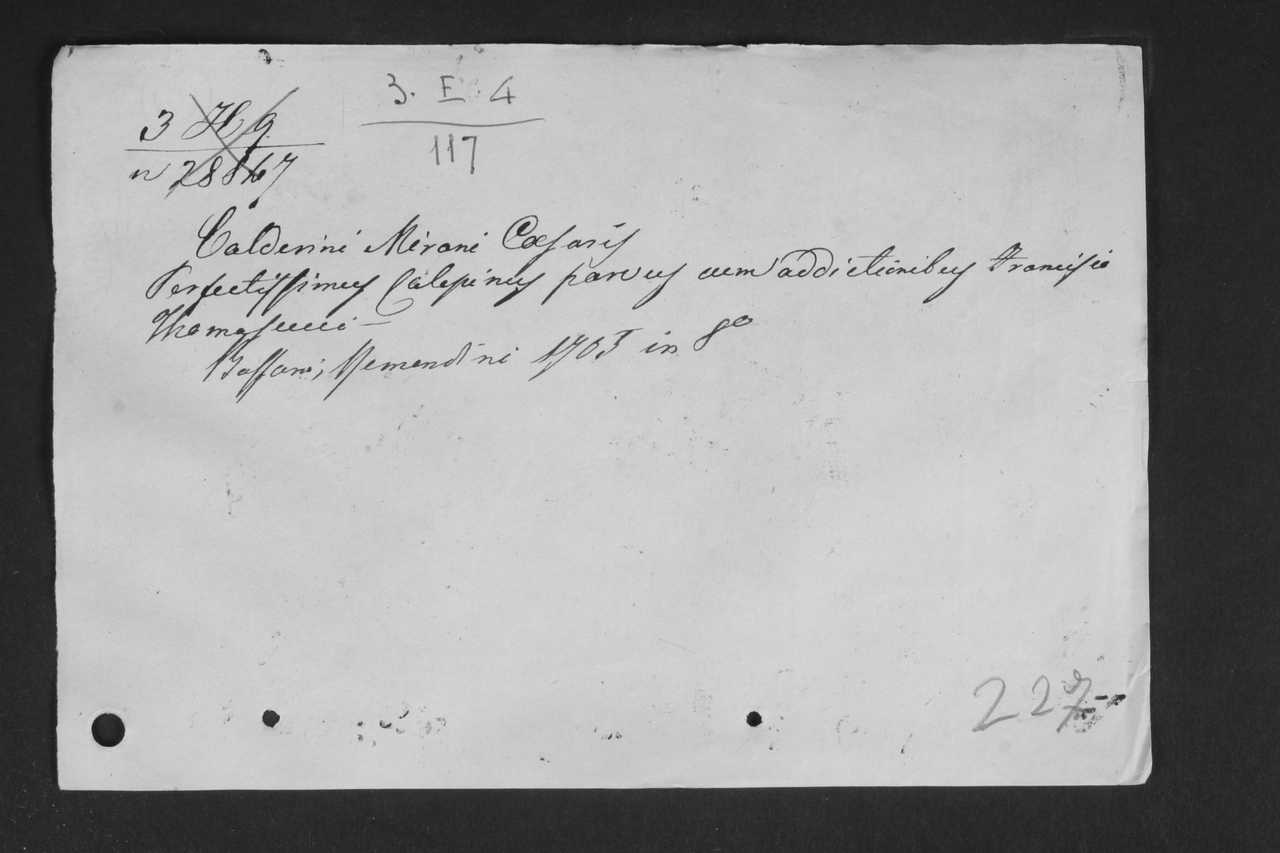 3. E 4
117
3 H 9
n 28867
Calderini Mirani Cæsaris
Perfectissimus Calepinus parvus cum addictionibus Francisci
Thomasucci —
Bassani, Remondini 1705 in 8º
227